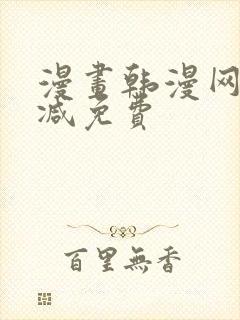 漫畫韩漫网
减免費
百里無香